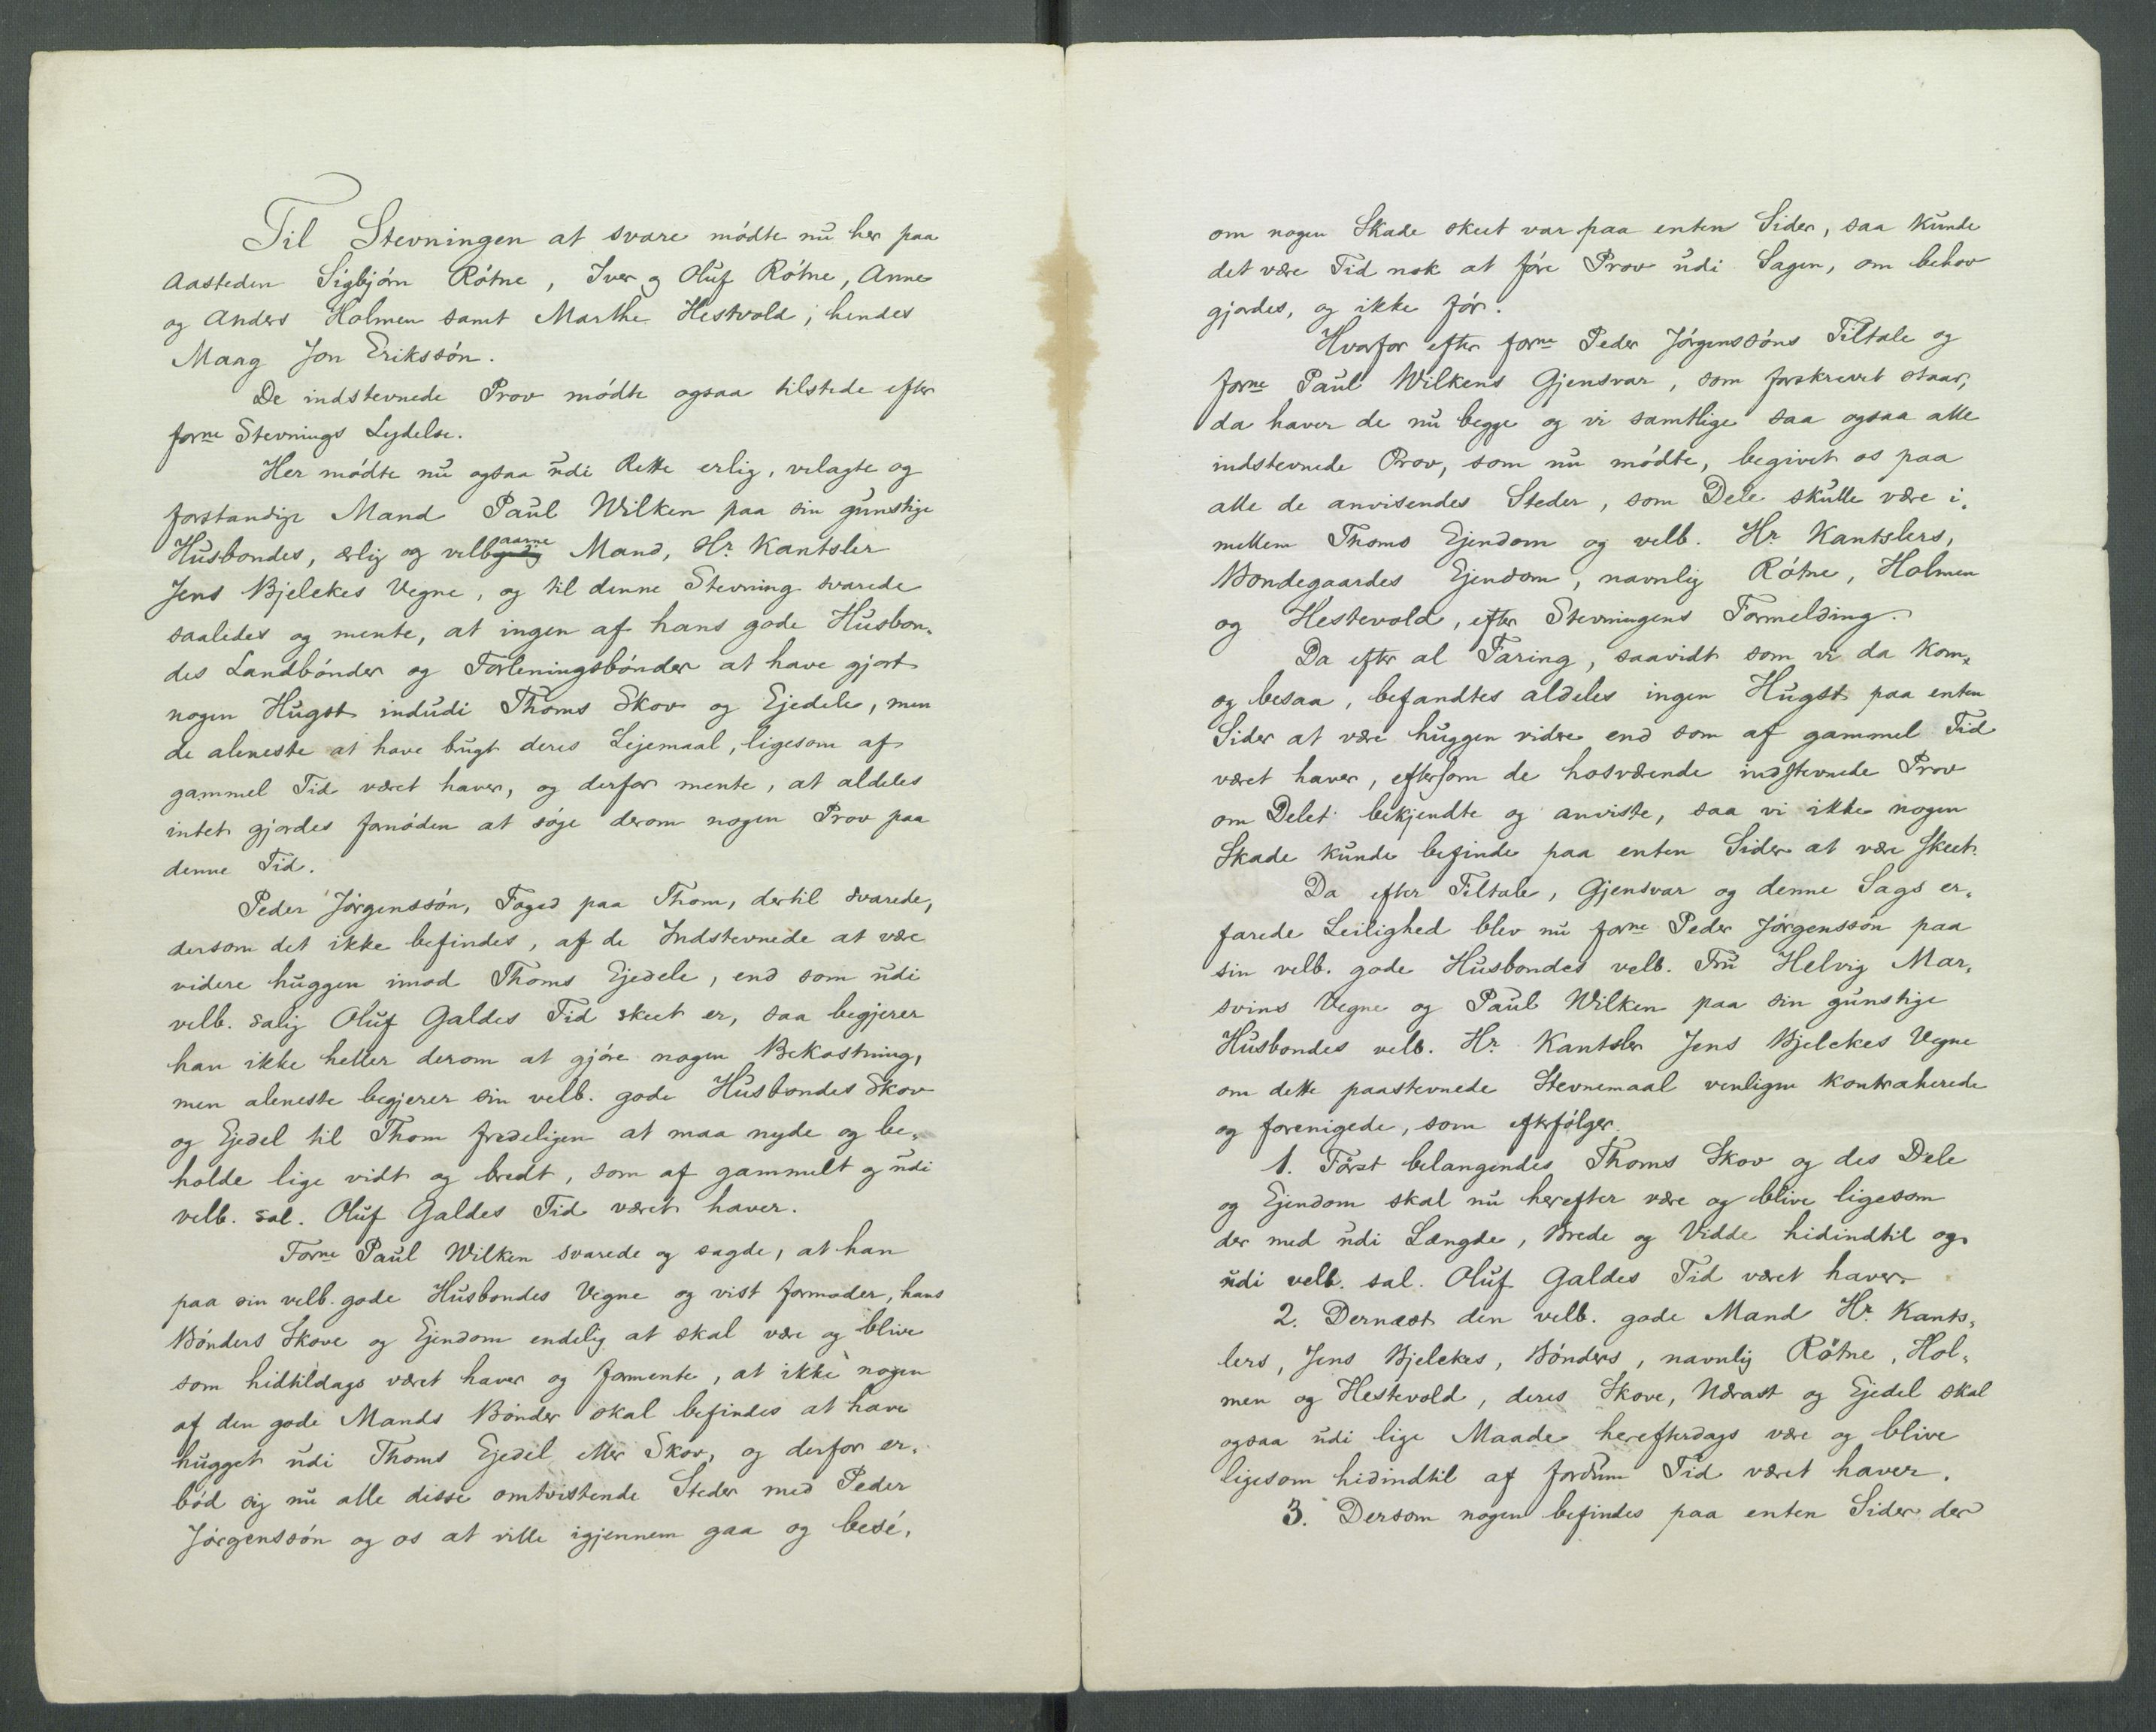 Til Stevningen at svare mödte nu her paa
Aasteden Sigbjörn Rötne, Iver og Oluf Rötne, Anne
og Anders Holmen samt Marthe Hestvold; hendes
Maag Jon Erikssön.
De indstevnede Prov mödte ogsaa tilstede efter
forne Stevnings Lydelse.
Her mödte nu ogsaa udi Rette erlig, velagte og
forstandige Mand Paul Wilken paa sin gunstige
Husbondes, ærlig og velbaarne Mand, Hr. Kantsler
Jens Bjelckes Vegne, og til denne Stevning svarede
saaledes og mente, at ingen af hans gode Husbon-
des Landbönder og Forleningsbönder at have gjort
nogen Hugst indudi Thoms Skov og Ejedele, men
de aleneste at have brugt deres Lejemaal, ligesom af
gammel Tid været haver, og derfor mente, at aldeles
intet gjordes fornöden at söge derom nogen Prov paa
denne Tid.
Peder Jörgenssön, Foged paa Thom, dertil svarede,
dersom det ikke befindes, af de Indstevnede at være
videre huggen imod Thoms Ejedele, end som udi
velb. salig Oluf Galdes Tid skeet er, saa begjerer
han ikke heller derom at gjöre nogen Bekostning,
men aleneste begjerer sin velb. gode Husbondes Skov
og Ejedel til Thom fredeligen at maa nyde og be-
holde lige vidt og bredt, som af gammelt og udi
velb. sal. Oluf Galdes Tid været haver.
Forne Paul Wilken svarede og sagde, at han
paa sin velb. gode Husbondes Vegne og vist formoder, hans
Bönders Skove og Ejendom endelig at skal være og blive
som hidtildags været haver og formente, at ikke nogen
af den gode Mands Bönder skal befindes at have
hugget udi Thoms Ejedel eller Skov, og derfor er-
böd sig nu alle disse omtvistende Steder med Peder
Jörgenssön og os at ville igjennem gaa og besé,
om nogen Skade skeet var paa enten Sider, saa kunde
det være Tid nok at före Prov udi Sagen, om behov
gjordes, og ikke för.
Hvorfor efter forne Peder Jörgenssöns Tiltale og
forne Paul Wilkens Gjensvar, som forskrevet staar,
da haver de nu begge og vi samtlige saa ogsaa alle
indstevnede Prov, som nu mödte, begivet os paa
alle de anvisendes Steder, som Dele skulle være i-
mellem Thoms Ejendom og velb. Hr. Kantslers,
Bondegaardes Ejendom, navnlig Rötne, Holmen
og Hestevold, efter Stevningens Formelding.
Da efter al Faring, saavidt som vi da kom,
og besaa, befandtes aldeles ingen Hugst paa enten
Sider at være huggen videre end som af gammel Tid
været haver, eftersom de hosværende indstevnede Prov
om Delet bekjendte og anviste, saa vi ikke nogen
Skade kunde befinde paa enten Sider at være skeet.
Da efter Tiltale, Gjensvar og denne Sags er-
farede Leilighed blev nu forne Peder Jörgenssön paa
sin velb. gode Husbondes velb. Fru Helvig Mar-
svins Vegne og Paul Wilken paa sin gunstige
Husbondes velb. Hr. Kantsler Jens Bjelckes Vegne
om dette paastevnede Stevnemaal venligen kontraherede
og forenigede, som efterfölger.
1. Först belangendes Thoms Skov og des Dele
og Ejendom skal nu herefter være og blive ligesom
der med udi Længde, Brede og Vidde hidindtil og
udi velb. sal. Oluf Galdes Tid været haver.
2. Dernæst den velb. gode Mand Hr. Kants-
lers, Jens Bjelckes, Bönders, navnlig Rötne, Hol-
men og Hestevold, deres Skove, Udrast og Ejedel skal
ogsaa udi lige Maade herefterdags være og blive
ligesom hidindtil af fordum Tid været haver.
3. Dersom nogen befindes paa enten Sider der